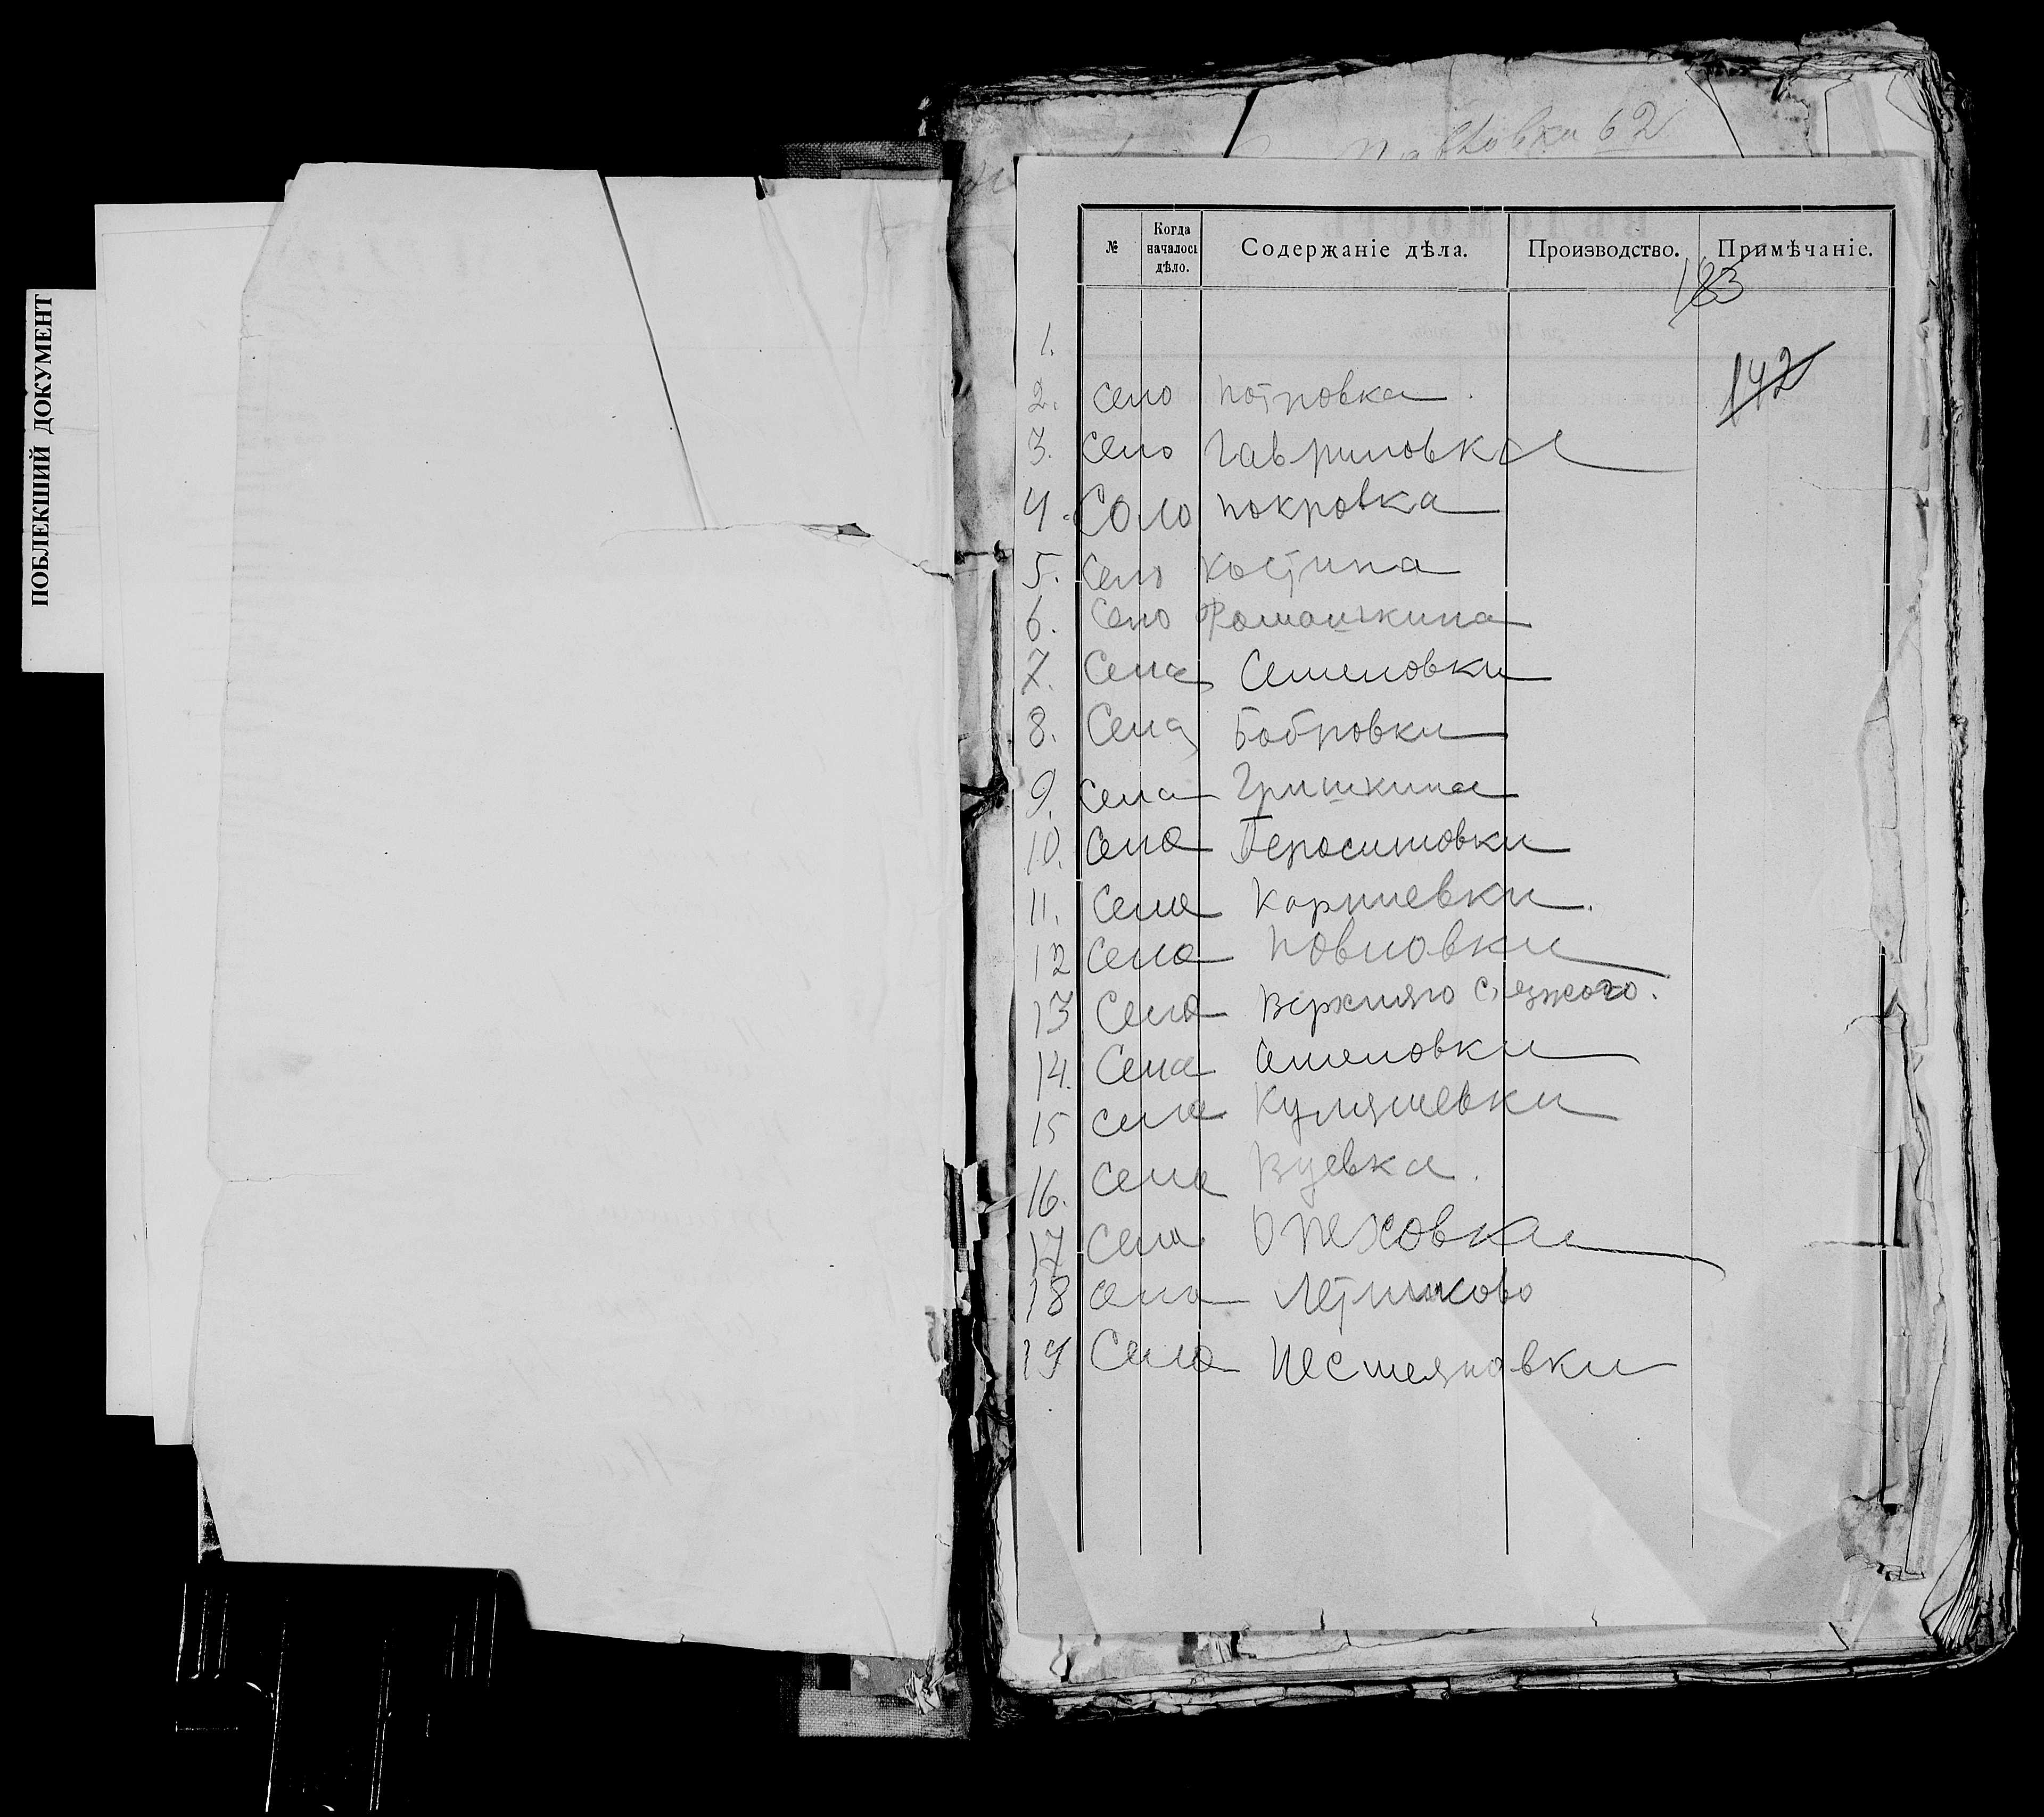 ПОБЛЕКШИЙ ДОКУМЕНТ
62
№ Когда началось дѣло. Содержаніе дѣла. Производство. Примѣчаніе.
183
142
1.
2. село потровка
3. село Гавриловка
4. Соло покровка
5. село Костина
6. село Ромашкина
7. Села Семеновки
8. Села Бобровки
9. села Гришкина
10. села Герасимовки
11. села Корниевки.
12 села Повловки
13 села Верхняго Съезжого.
14. Села Семеновки
15 села Кулешевки
16. Села
17 села Ореховка
18 села Летниково
19 Села Несмеяновки